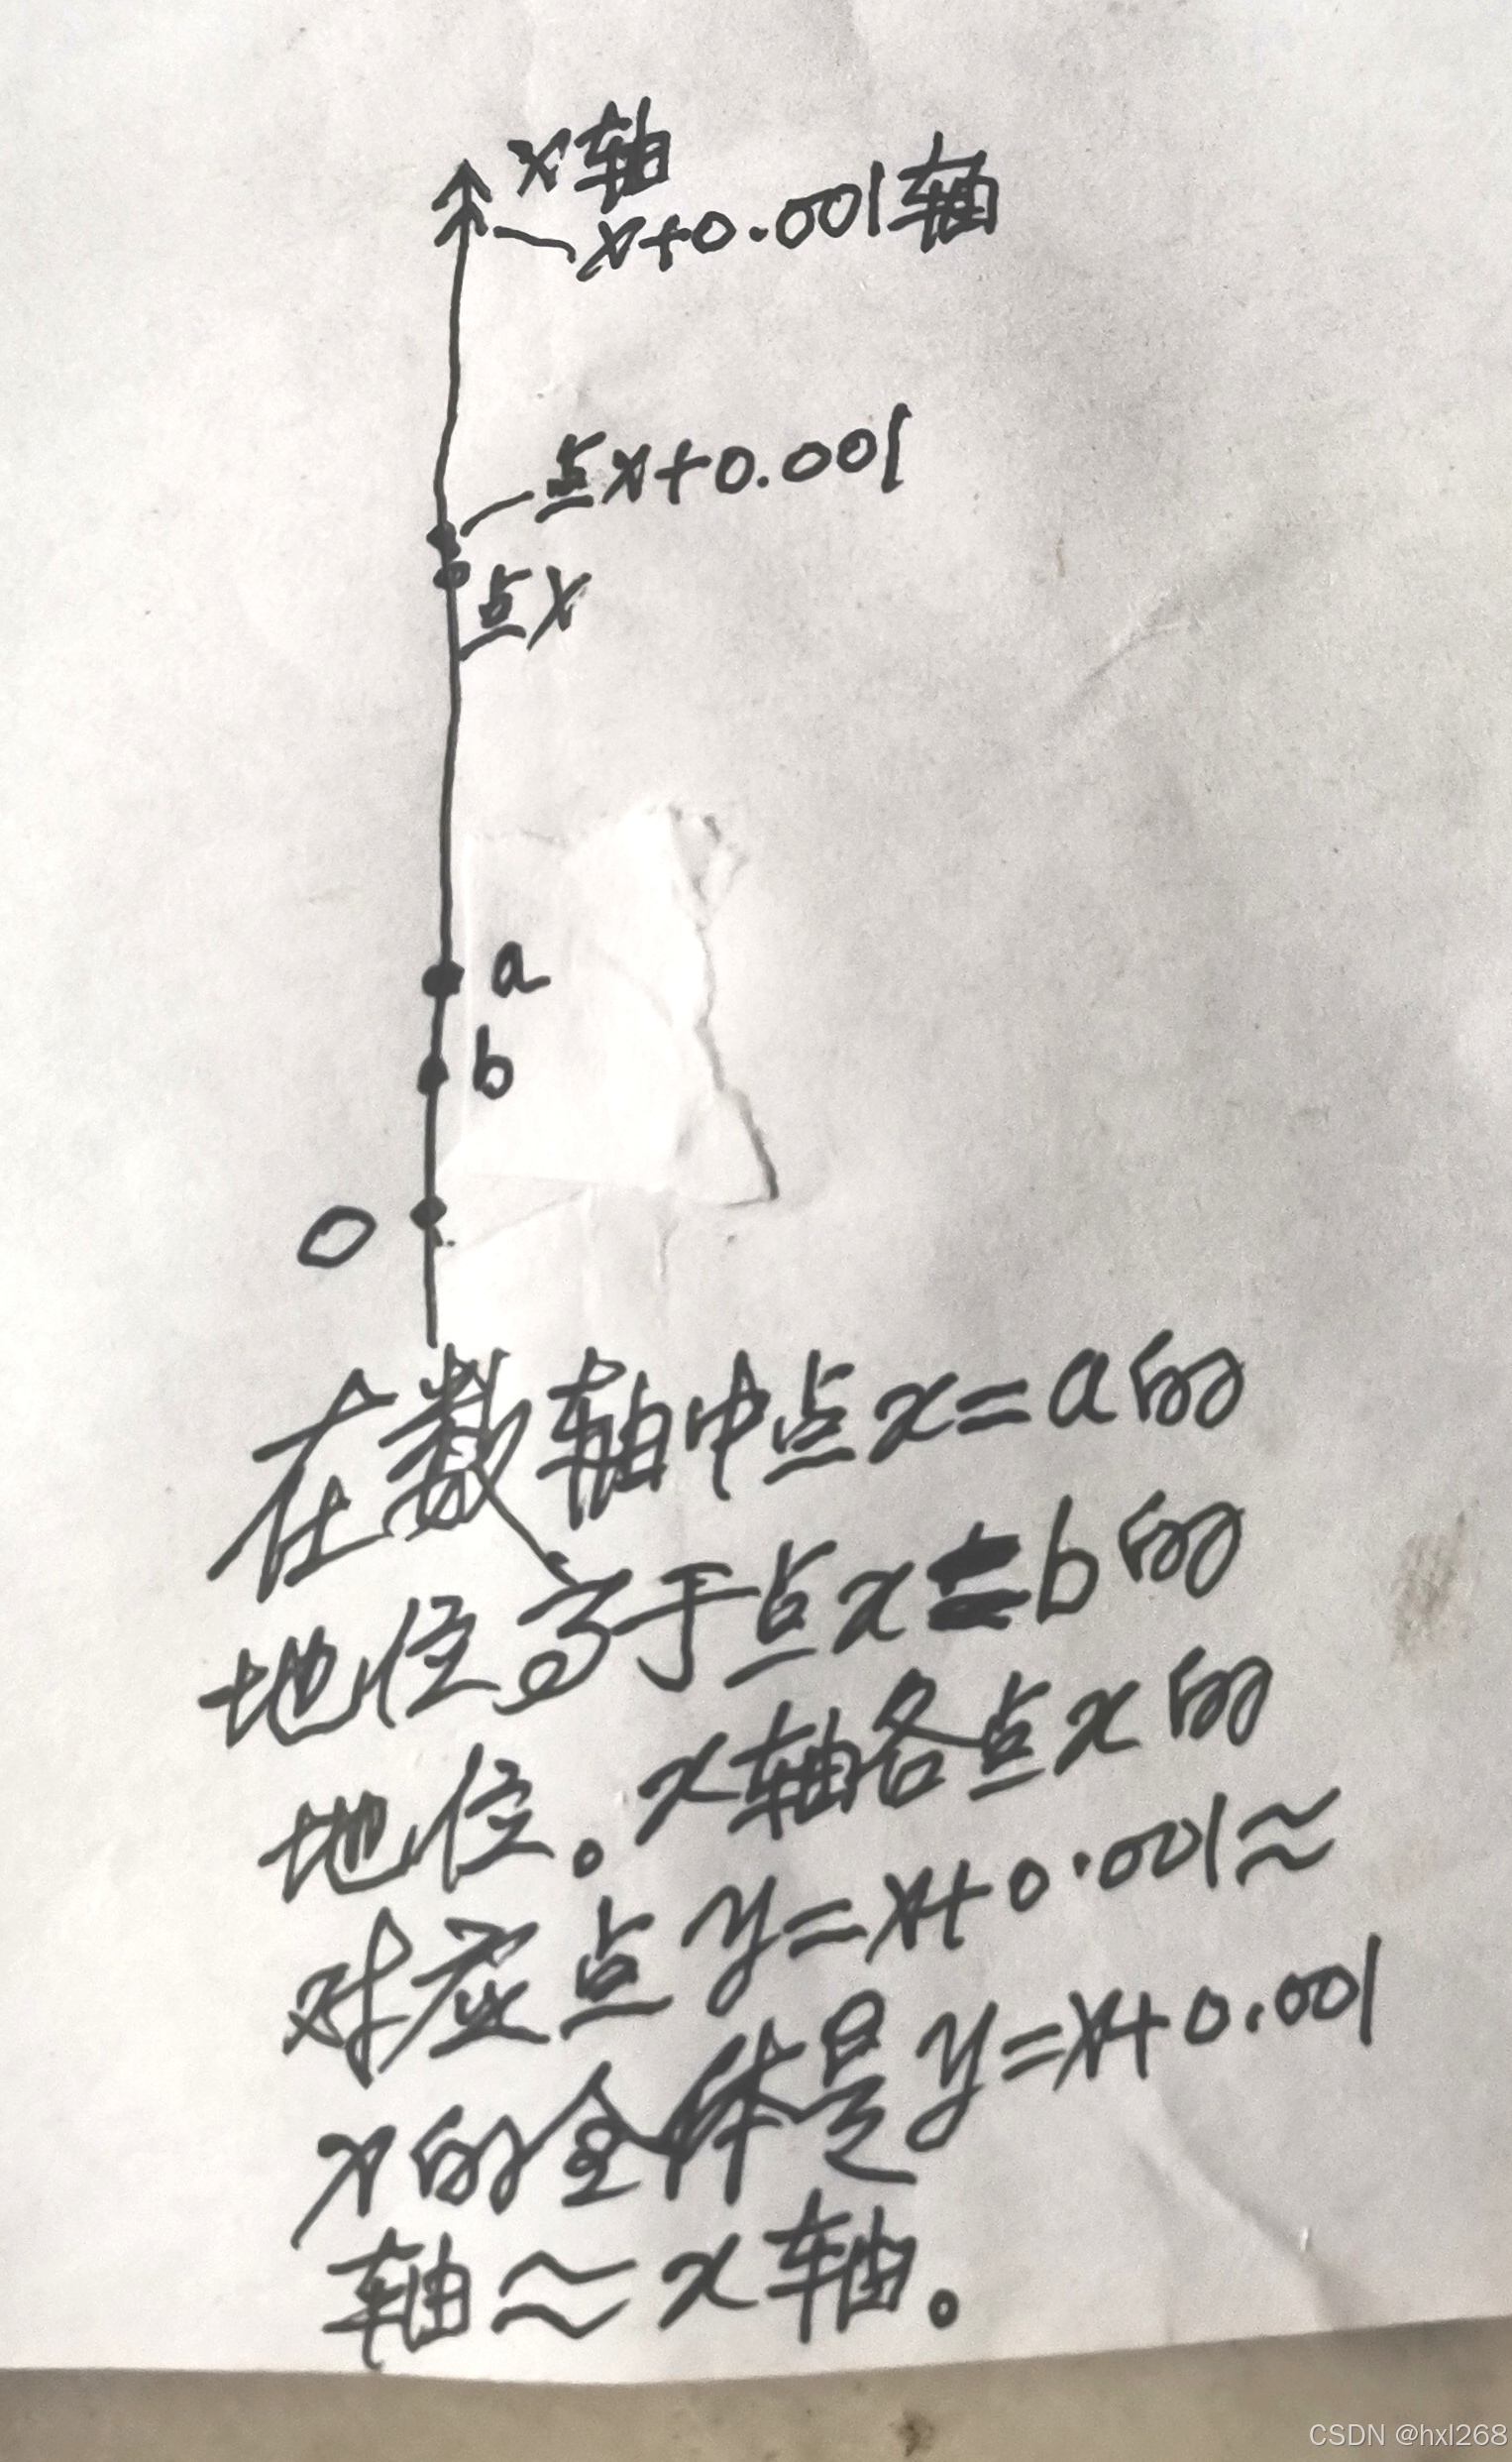 x轴
x+0.001轴
点x+0.001
点x
a
b
0
在数轴中点x=a的
地位高于点x=b的
地位。x轴各点x的
对应点y=x+0.001≈
x的全体是y=x+0.001
轴≈x轴。
CSDN @hxl268